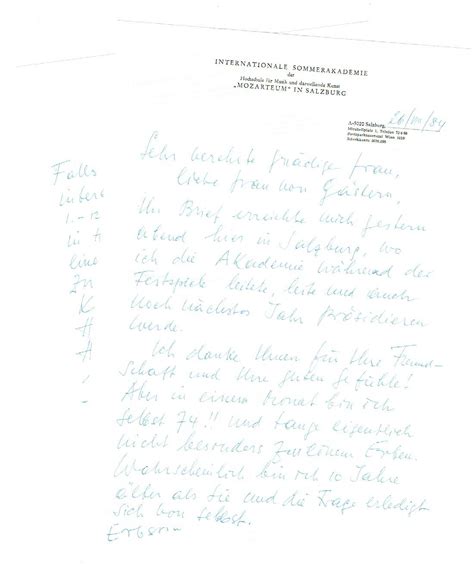 INTERNATIONALE SOMMERAKADEMIE
der
Hochschule für Musik und darstellende Kunst
„MOZARTEUM" IN SALZBURG
A-5020 Salzburg,
Mirabellplatz 1, Telefon
26/VIII/84
Sehr verehrte gnädige Frau,
liebe Frau von
Ihr Brief erreichte mich gestern
abend hier in Salzburg, wo
ich die Akademie während der
Festspiele leitete, leite und auch
noch nächstes Jahr präsidieren
werde.
Ich danke Ihnen für Ihre Freund-
schaft und Ihre guten Gefühle!
Aber in einem Monat bin ich
selbst 74!! und tauge eigentlich
nicht besonders zu einem Erben.
Wahrscheinlich bin ich 10 Jahre
älter als Sie und die Frage erledigt
sich von selbst.
Falls
1.-12
in
eine